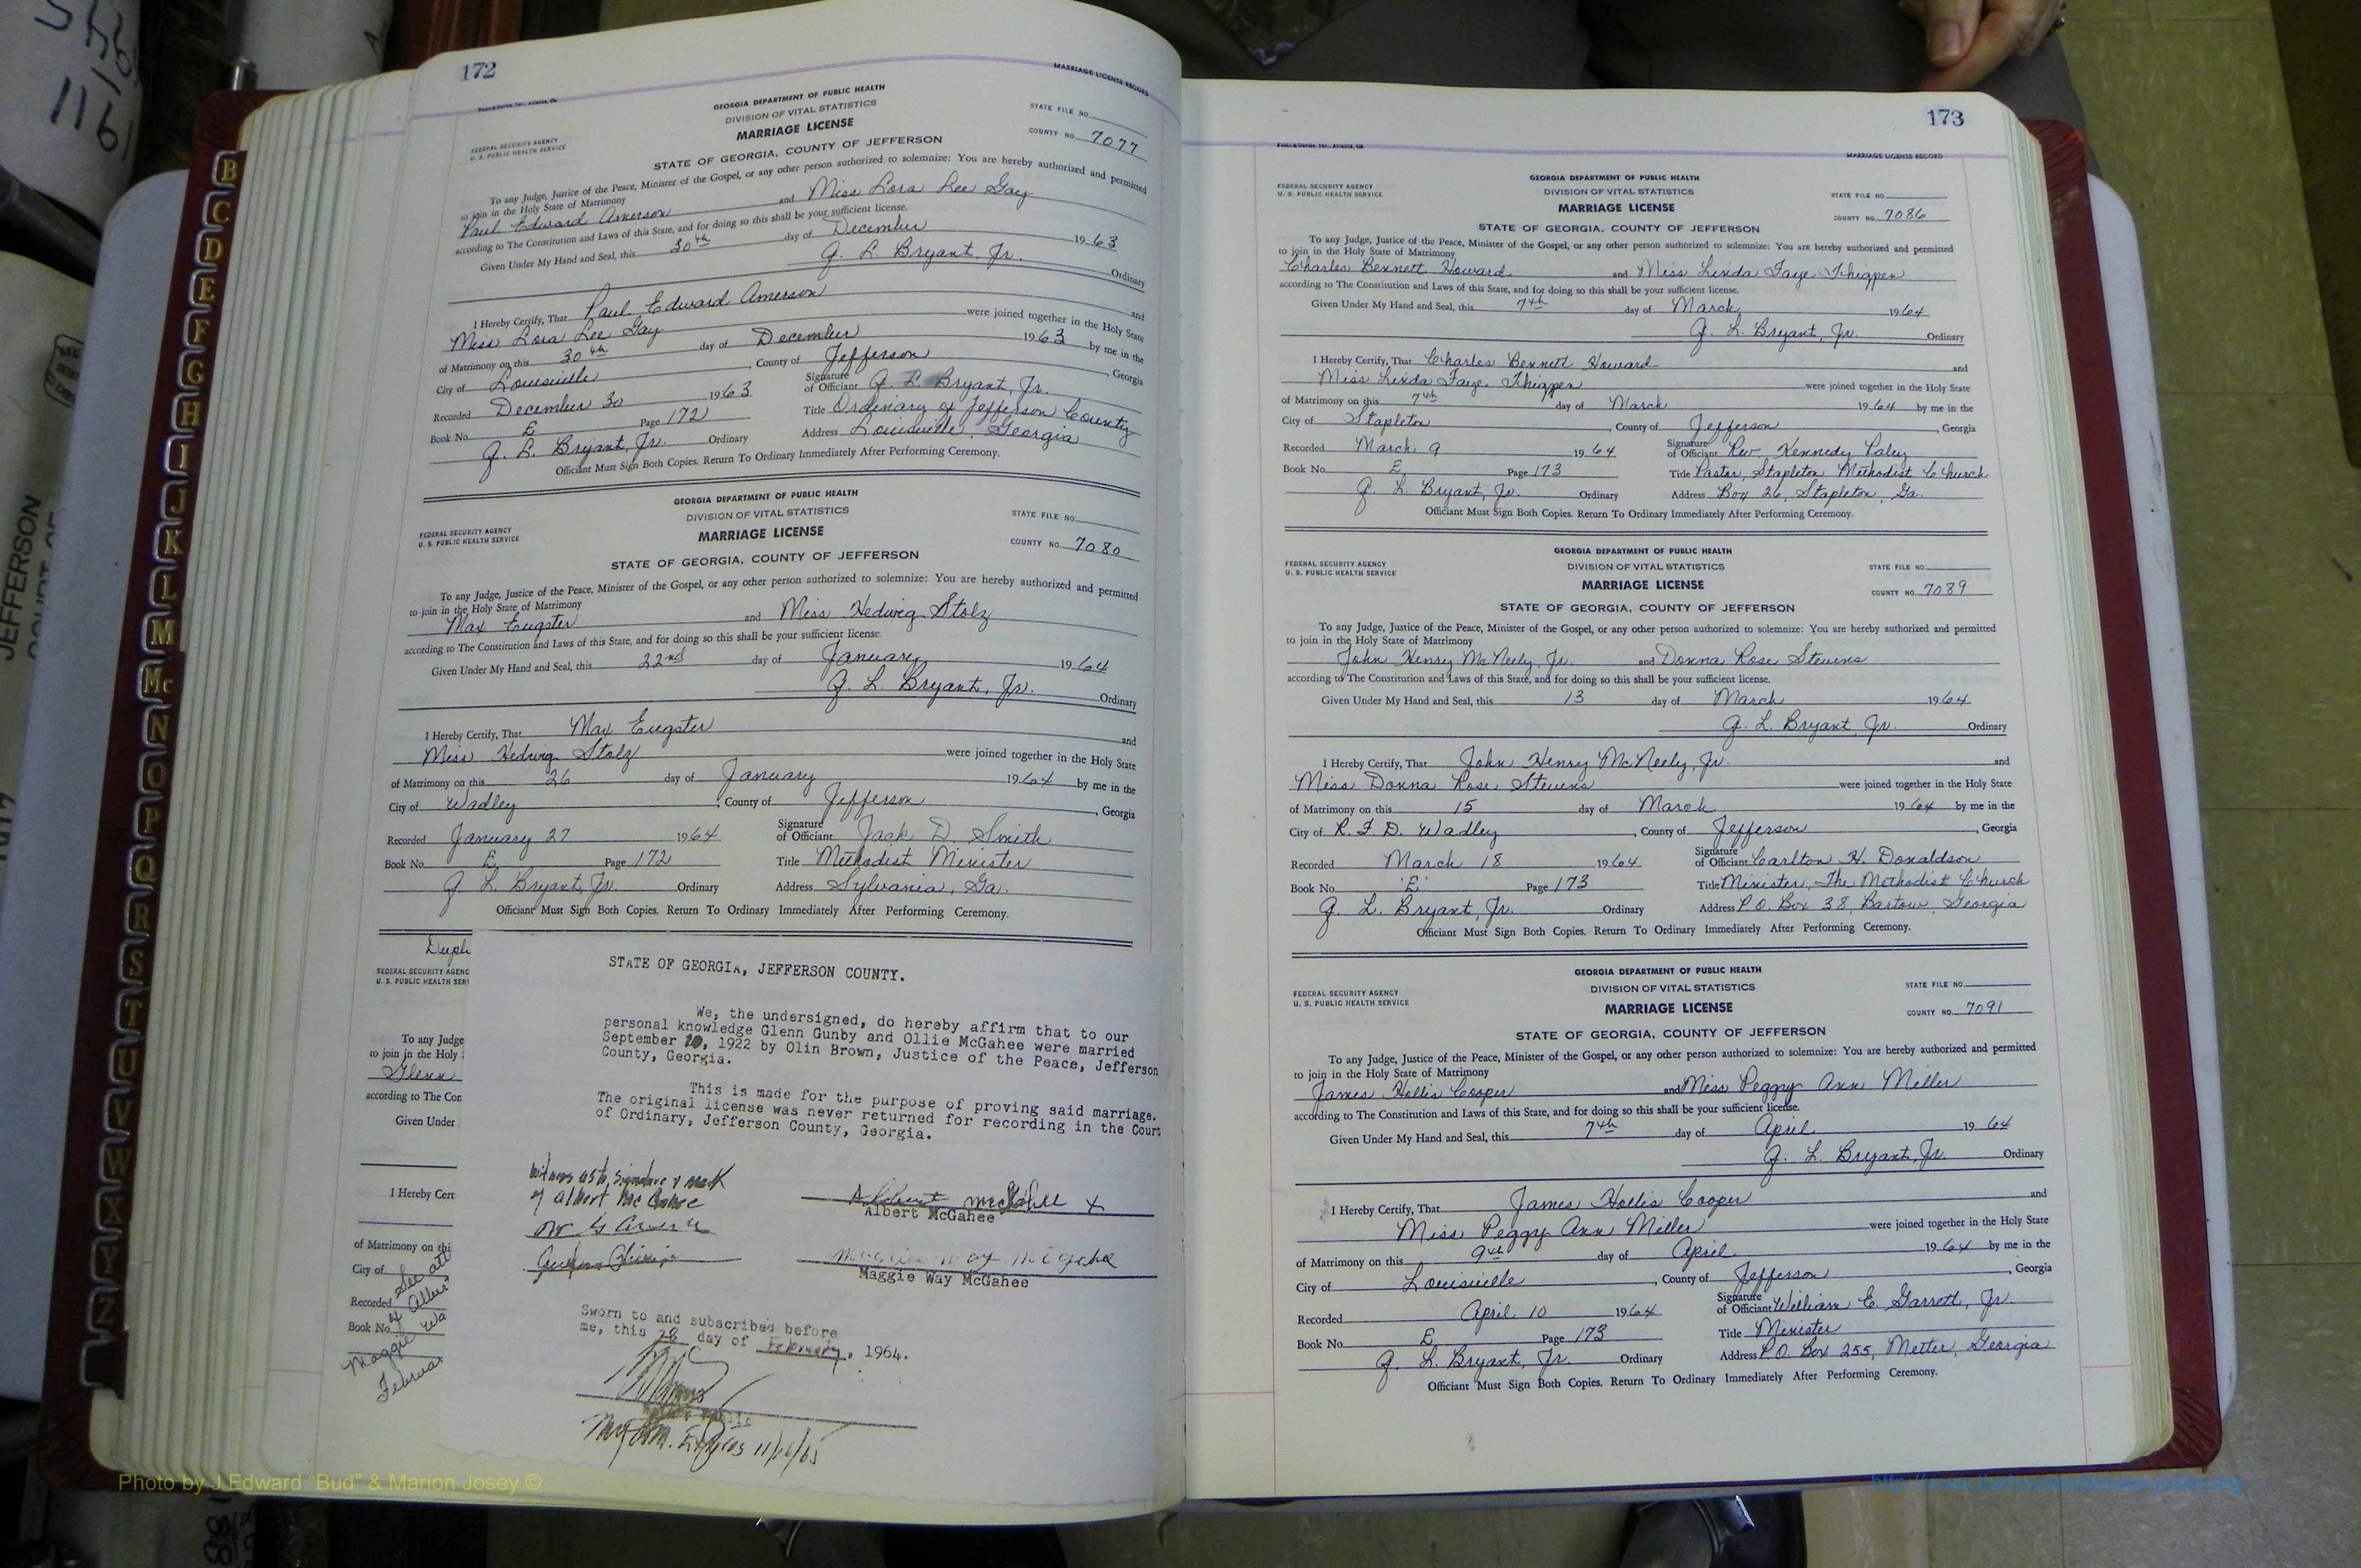 172
MARRIAGE LICENSE RECORD
GEORGIA DEPARTMENT OF PUBLIC HEALTH
DIVISION OF VITAL STATISTICS
MARRIAGE LICENSE
STATE OF GEORGIA, COUNTY OF JEFFERSON
FEDERAL SECURITY AGENCY
U. S. PUBLIC HEALTH SERVICE
STATE FILE NO.
COUNTY NO. 7077
To any Judge, Justice of the Peace, Minister of the Gospel, or any other person authorized to solemnize: You are hereby authorized and permitted
to join in the Holy State of Matrimony
Paul Edward Amerson and Miss Lora Lee Gay
according to The Constitution and Laws of this State, and for doing so this shall be your sufficient license.
Given Under My Hand and Seal, this 30th day of December 1963
Q. L. Bryant, Jr. Ordinary
I Hereby Certify, That Paul Edward Amerson and
Miss Lora Lee Gay were joined together in the Holy State
of Matrimony on this 30th day of December 1963 by me in the
City of Louisville, County of Jefferson, Georgia
Recorded December 30 1963 Signature of Officiant Q. L. Bryant, Jr.
Book No. E Page 172 Title Ordinary of Jefferson County
Q. L. Bryant, Jr. Ordinary Address Louisville, Georgia
Officiant Must Sign Both Copies. Return To Ordinary Immediately After Performing Ceremony.
GEORGIA DEPARTMENT OF PUBLIC HEALTH
DIVISION OF VITAL STATISTICS
MARRIAGE LICENSE
STATE OF GEORGIA, COUNTY OF JEFFERSON
FEDERAL SECURITY AGENCY
U. S. PUBLIC HEALTH SERVICE
STATE FILE NO.
COUNTY NO. 7080
To any Judge, Justice of the Peace, Minister of the Gospel, or any other person authorized to solemnize: You are hereby authorized and permitted
to join in the Holy State of Matrimony
Max Eugster and Miss Hedwig Stolz
according to The Constitution and Laws of this State, and for doing so this shall be your sufficient license.
Given Under My Hand and Seal, this 22nd day of January 1964
Q. L. Bryant, Jr. Ordinary
I Hereby Certify, That Max Eugster and
Miss Hedwig Stolz were joined together in the Holy State
of Matrimony on this 26 day of January 1964 by me in the
City of Wadley, County of Jefferson, Georgia
Recorded January 27 1964 Signature of Officiant Jack D. Smith
Book No. E Page 172 Title Methodist Minister
Q. L. Bryant, Jr. Ordinary Address Sylvania, Ga.
Officiant Must Sign Both Copies. Return To Ordinary Immediately After Performing Ceremony.
Dupli
FEDERAL SECURITY AGENC
U. S. PUBLIC HEALTH SER
To any Judge
to join in the Holy
Glenn
according to The Con
Given Under
I Hereby Cert
of Matrimony on thi
City of
Recorded
Book No.
See att
of Alber
Maggie Wa
Februar
STATE OF GEORGIA, JEFFERSON COUNTY.
We, the undersigned, do hereby affirm that to our
personal knowledge Glenn Gunby and Ollie McGahee were married
September 10, 1922 by Olin Brown, Justice of the Peace, Jefferson
County, Georgia.
This is made for the purpose of proving said marriage.
The original license was never returned for recording in the Court
of Ordinary, Jefferson County, Georgia.
Witness as to signature & mark
of Albert McGahee
Albert McGahee X
Albert McGahee
Maggie Way McGahee
Maggie Way McGahee
Sworn to and subscribed before
me, this 28 day of February, 1964.
Notary Public
My Com. Expires 11/16/65
173
MARRIAGE LICENSE RECORD
GEORGIA DEPARTMENT OF PUBLIC HEALTH
DIVISION OF VITAL STATISTICS
MARRIAGE LICENSE
STATE OF GEORGIA, COUNTY OF JEFFERSON
FEDERAL SECURITY AGENCY
U. S. PUBLIC HEALTH SERVICE
STATE FILE NO.
COUNTY NO. 7086
To any Judge, Justice of the Peace, Minister of the Gospel, or any other person authorized to solemnize: You are hereby authorized and permitted
to join in the Holy State of Matrimony
Charles Bennett Howard and Miss Linda Faye Thigpen
according to The Constitution and Laws of this State, and for doing so this shall be your sufficient license.
Given Under My Hand and Seal, this 7th day of March 1964
Q. L. Bryant, Jr. Ordinary
I Hereby Certify, That Charles Bennett Howard and
Miss Linda Faye Thigpen were joined together in the Holy State
of Matrimony on this 7th day of March 1964 by me in the
City of Stapleton, County of Jefferson, Georgia
Recorded March 9 1964 Signature of Officiant Rev. Kennedy Paley
Book No. E Page 173 Title Pastor, Stapleton Methodist Church
Q. L. Bryant, Jr. Ordinary Address Box 26, Stapleton, Ga.
Officiant Must Sign Both Copies. Return To Ordinary Immediately After Performing Ceremony.
GEORGIA DEPARTMENT OF PUBLIC HEALTH
DIVISION OF VITAL STATISTICS
MARRIAGE LICENSE
STATE OF GEORGIA, COUNTY OF JEFFERSON
FEDERAL SECURITY AGENCY
U. S. PUBLIC HEALTH SERVICE
STATE FILE NO.
COUNTY NO. 7089
To any Judge, Justice of the Peace, Minister of the Gospel, or any other person authorized to solemnize: You are hereby authorized and permitted
to join in the Holy State of Matrimony
John Henry McNeely, Jr. and Donna Rose Stevens
according to The Constitution and Laws of this State, and for doing so this shall be your sufficient license.
Given Under My Hand and Seal, this 13 day of March 1964
Q. L. Bryant, Jr. Ordinary
I Hereby Certify, That John Henry McNeely, Jr. and
Miss Donna Rose Stevens were joined together in the Holy State
of Matrimony on this 15 day of March 1964 by me in the
City of R.F.D. Wadley, County of Jefferson, Georgia
Recorded March 18 1964 Signature of Officiant Carlton H. Donaldson
Book No. 'E' Page 173 Title Minister, The Methodist Church
Q. L. Bryant, Jr. Ordinary Address P.O. Box 38, Bartow, Georgia
Officiant Must Sign Both Copies. Return To Ordinary Immediately After Performing Ceremony.
GEORGIA DEPARTMENT OF PUBLIC HEALTH
DIVISION OF VITAL STATISTICS
MARRIAGE LICENSE
STATE OF GEORGIA, COUNTY OF JEFFERSON
FEDERAL SECURITY AGENCY
U. S. PUBLIC HEALTH SERVICE
STATE FILE NO.
COUNTY NO. 7091
To any Judge, Justice of the Peace, Minister of the Gospel, or any other person authorized to solemnize: You are hereby authorized and permitted
to join in the Holy State of Matrimony
James Hollis Cooper and Miss Peggy Ann Miller
according to The Constitution and Laws of this State, and for doing so this shall be your sufficient license.
Given Under My Hand and Seal, this 7th day of April 1964
Q. L. Bryant, Jr. Ordinary
I Hereby Certify, That James Hollis Cooper and
Miss Peggy Ann Miller were joined together in the Holy State
of Matrimony on this 9th day of April 1964 by me in the
City of Louisville, County of Jefferson, Georgia
Recorded April 10 1964 Signature of Officiant William E. Garrett, Jr.
Book No. E Page 173 Title Minister
Q. L. Bryant, Jr. Ordinary Address P.O. Box 255, Metter, Georgia
Officiant Must Sign Both Copies. Return To Ordinary Immediately After Performing Ceremony.
B
C
D
E
F
G
H
I
J
K
L
M
Mc
N
O
P
Q
R
S
T
U
V
W
X
Y
Z
JEFFERSON
Photo by J Edward "Bud" & Marion Josey ©